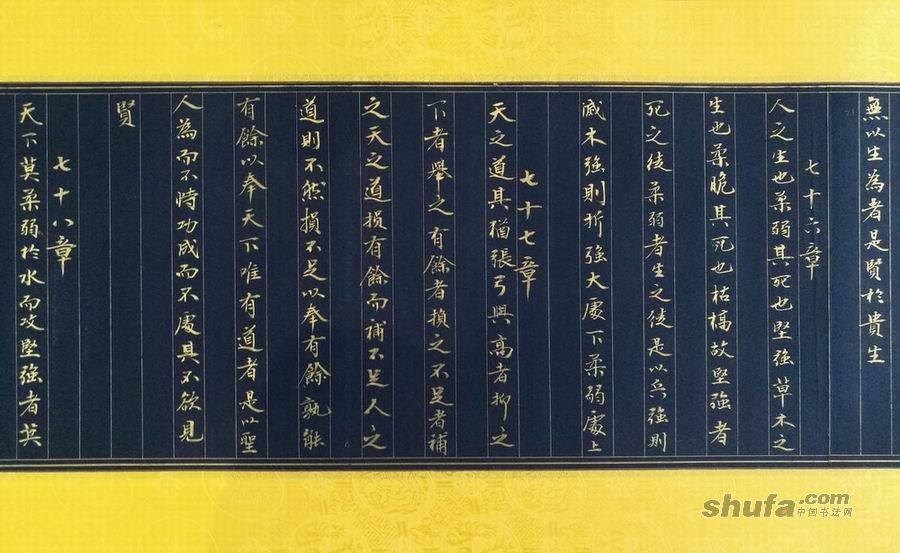 無以生為者是賢於貴生
七十六章
人之生也柔弱其死也堅強草木之
生也柔脆其死也枯槁故堅強者
死之徒柔弱者生之徒是以兵強則
滅木強則折強大處下柔弱處上
七十七章
天之道其猶張弓與高者抑之
下者舉之有餘者損之不足者補
之天之道損有餘而補不足人之
道則不然損不足以奉有餘孰能
有餘以奉天下唯有道者是以聖
人為而不恃功成而不處其不欲見
賢
七十八章
天下莫柔弱於水而攻堅強者莫
shufa.com
中国书法网